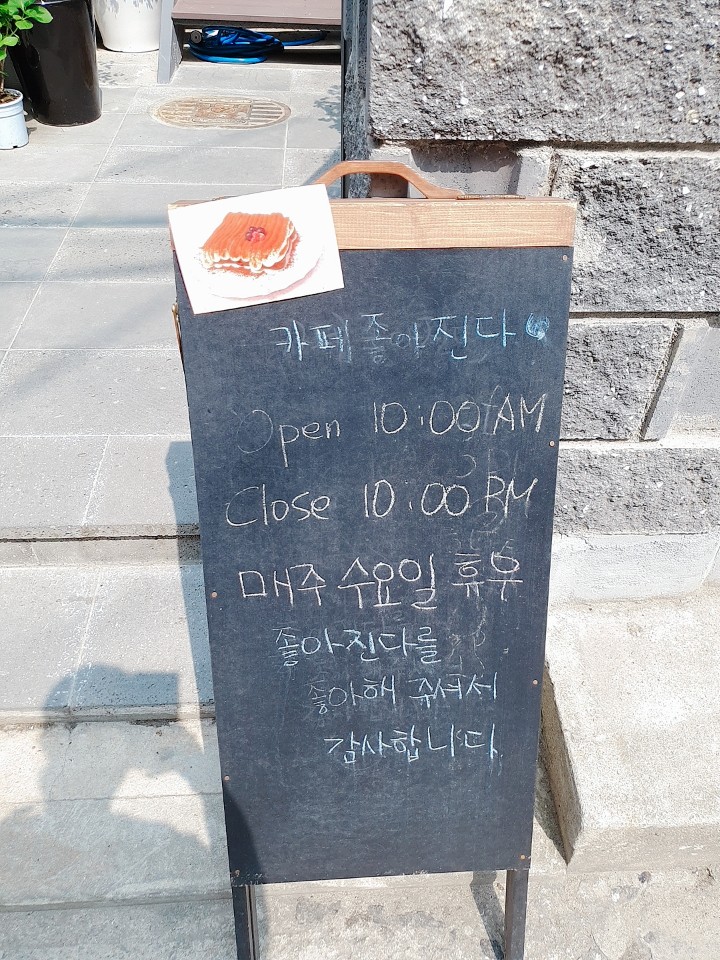 카페 좋아진다
Open 10:00 AM
Close 10:00 PM
매주 수요일 휴무
좋아진다를
좋아해 주셔서
감사합니다.